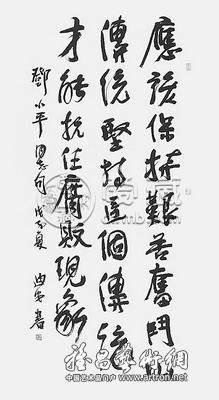 應該保持艱苦奮鬥的
傳統堅持這個傳統
才能抗住腐敗現象
鄧小平同志句 戊子夏 書
雅昌藝術網
中国艺术品门户 www.artron.net